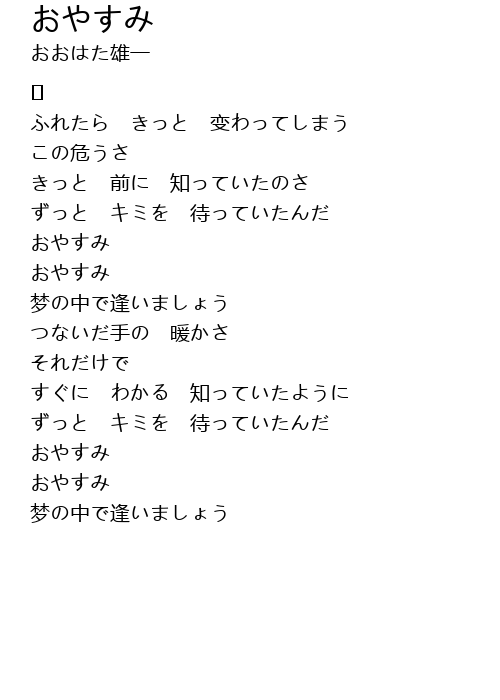 おやすみ
おおはた雄一
ふれたら　きっと　変わってしまう
この危うさ
きっと　前に　知っていたのさ
ずっと　キミを　待っていたんだ
おやすみ
おやすみ
梦の中で逢いましょう
つないだ手の　暖かさ
それだけで
すぐに　わかる　知っていたように
ずっと　キミを　待っていたんだ
おやすみ
おやすみ
梦の中で逢いましょう